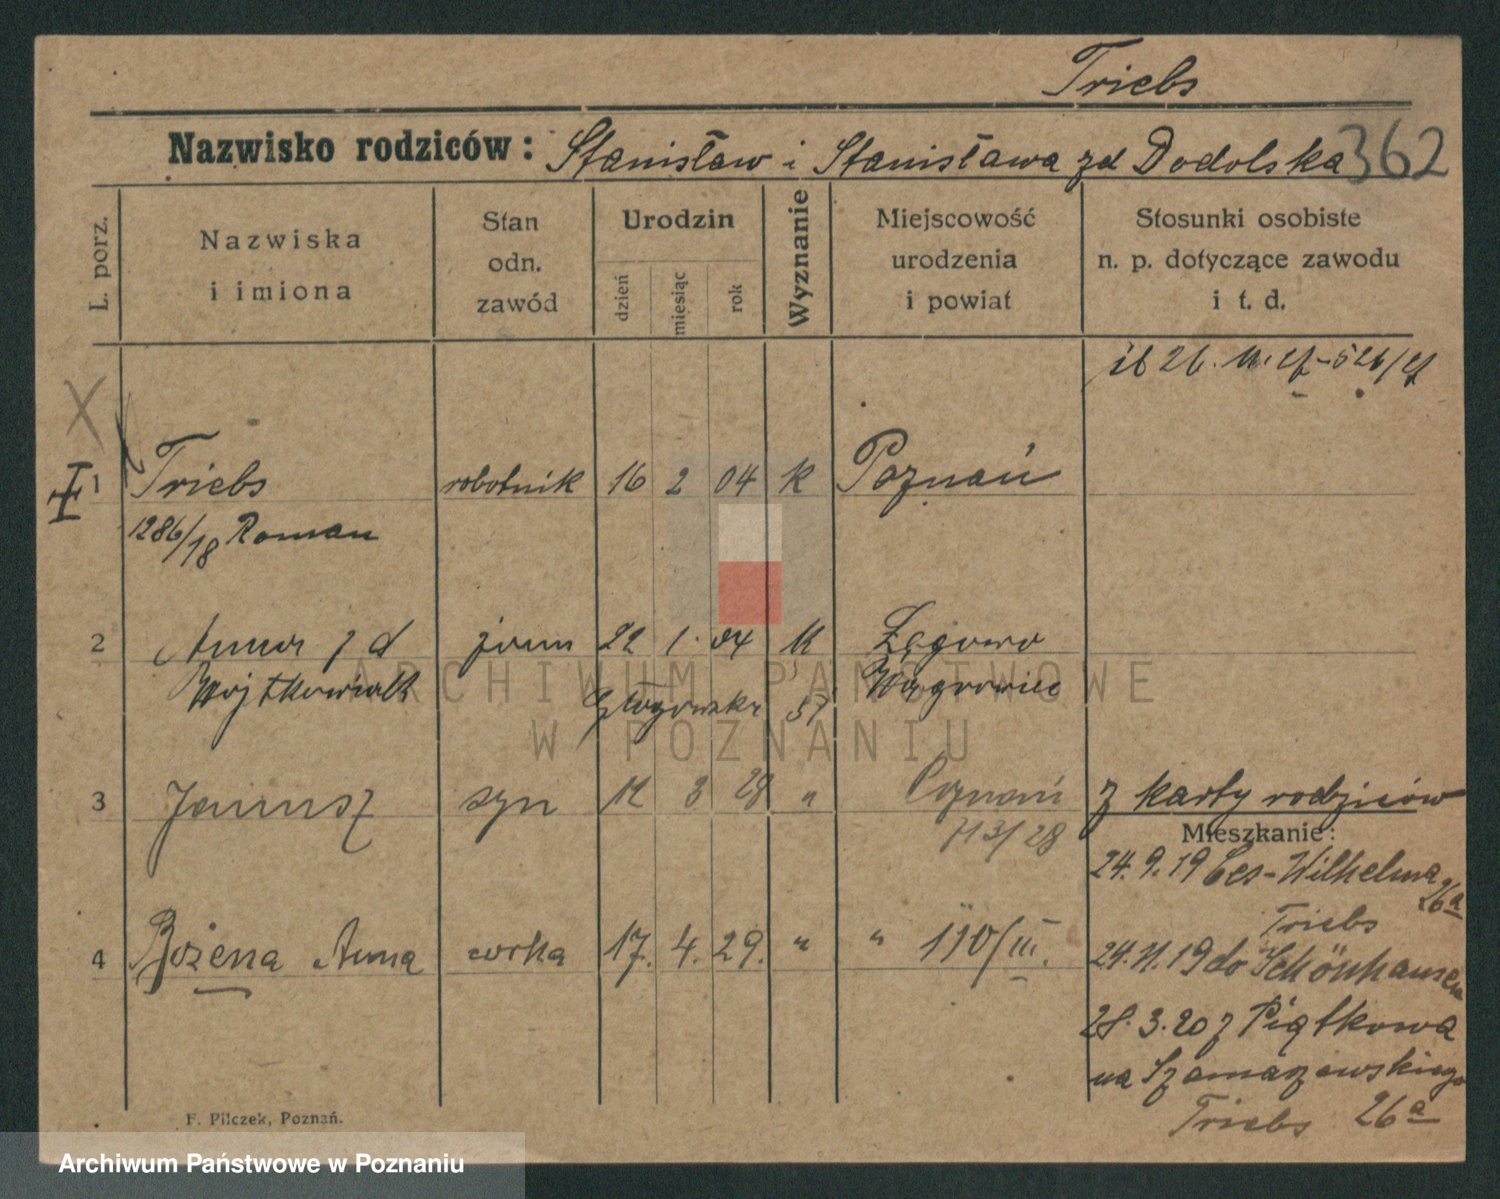 Triebs
Nazwisko rodziców: Stanisław i Stanisława zd Dodolska 362
L. porz.
Nazwiska
i imiona
Stan
odn.
zawód
Urodzin
dzień
miesiąc
rok
Wyznanie
Miejscowość
urodzenia
i powiat
Stosunki osobiste
n. p. dotyczące zawodu
i t. d.
1 Triebs robotnik 16 2 04 k Poznań
1286/18 Roman
2 Anna z d żona 22 1. 04 k Łęgowo
Wojtkowiak Wągrowiec
Głogowska 57
3 Janusz syn 12 3 28 " Poznań z karty rodziców
713/28
Mieszkanie:
24. 9. 19 Ces-Wilhelma 26a
Triebs
4 Bożena Anna corka 17. 4. 29. " " 110/III.
24. 11. 19 do Schönhausen
28. 3. 20 z Piątkowa
na Szamarzewskiego
Triebs 26a
F. Pilczek, Poznań.
ARCHIWUM PAŃSTWOWE
W POZNANIU
Archiwum Państwowe w Poznaniu